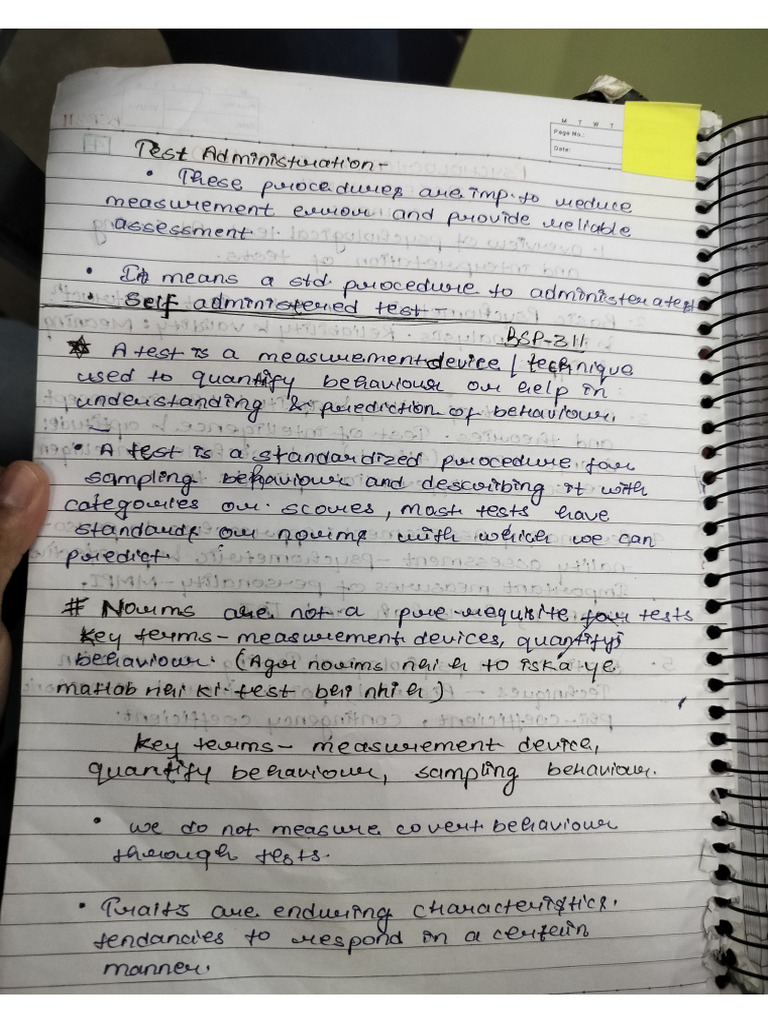 M T W T
Page No.:
Date:
Test Administration-
• These procedures are imp. to reduce
measurement error and provide reliable
assessment.
• It means a std. procedure to administer a test
• Self administered test
BSP-311
A test is a measurement device / technique
used to quantify behaviour or help in
understanding & prediction of behaviour.
• A test is a standardized procedure for
sampling behaviour and describing it with
categories or scores, most tests have
standards or norms with which we can
predict.
# Norms are not a pre-requisite for tests
Key terms - measurement devices, quantify
behaviour. (Agr norms nhi h to iska ye
matlab nhi ki test bhi nhi h)
Key terms - measurement device,
quantify behaviour, sampling behaviour.
• we do not measure covert behaviour
through tests.
• Traits are enduring characteristics.
tendancies to respond in a certain
manner.